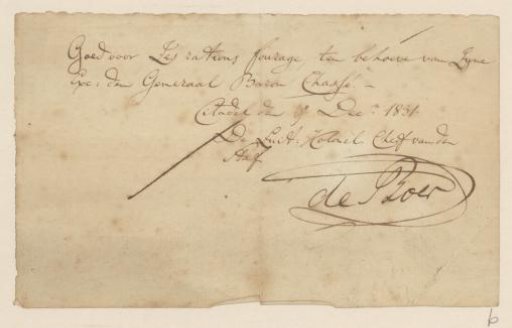 Goed voor Zes rations fourage ten behoeve van Zyne
Exc: den Generaal Baron Chassé. –
Citadel den 9 Decr 1831
De Luit: Kolonel Cheff van den
Staf
de Boer
b